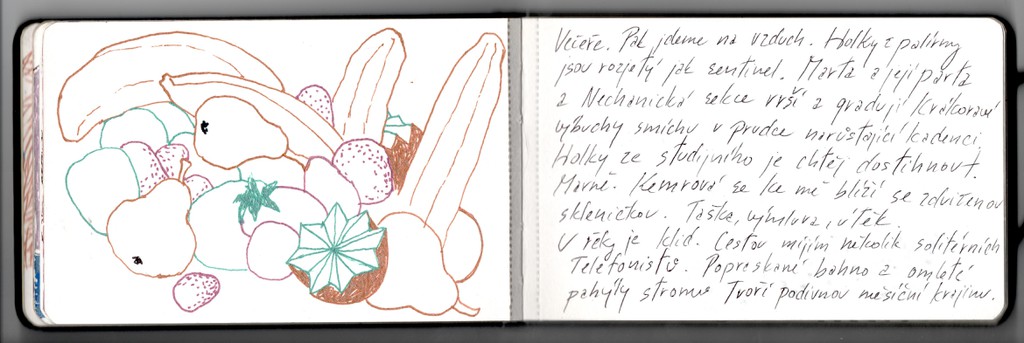 Večeře. Pak jdeme na vzduch. Holky z palírny
jsou rozjetý jak sentinel. Marta a její parta
z Nechanická sekce vrší a gradují krákoravé
výbuchy smíchu v prudce narůstající kadenci.
Holky ze studijního je chtěj dostihnout.
Marně. Kemrová se ke mě blíží se zdviženou
skleničkou. Taška, výmluva, útěk
U řeky je klid. Cestou míjím několik solitérních
Telefonistů. Popraskané bahno a omleté
pahýly stromů Tvoří podivnou měsíční krajinu.